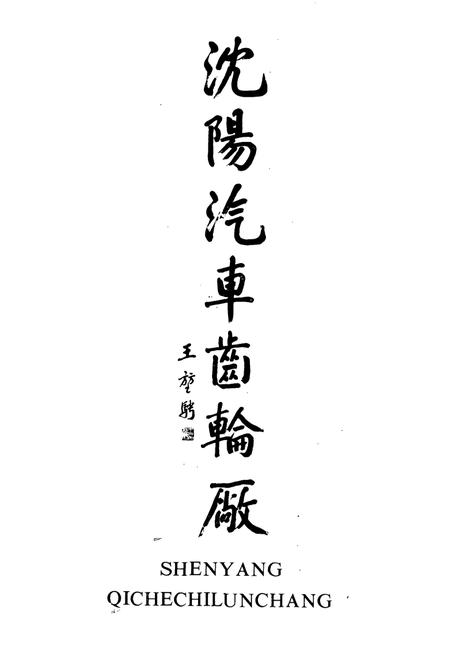 沈陽汽車齒輪厰
王堃騁
SHENYANG
QICHECHILUNCHANG